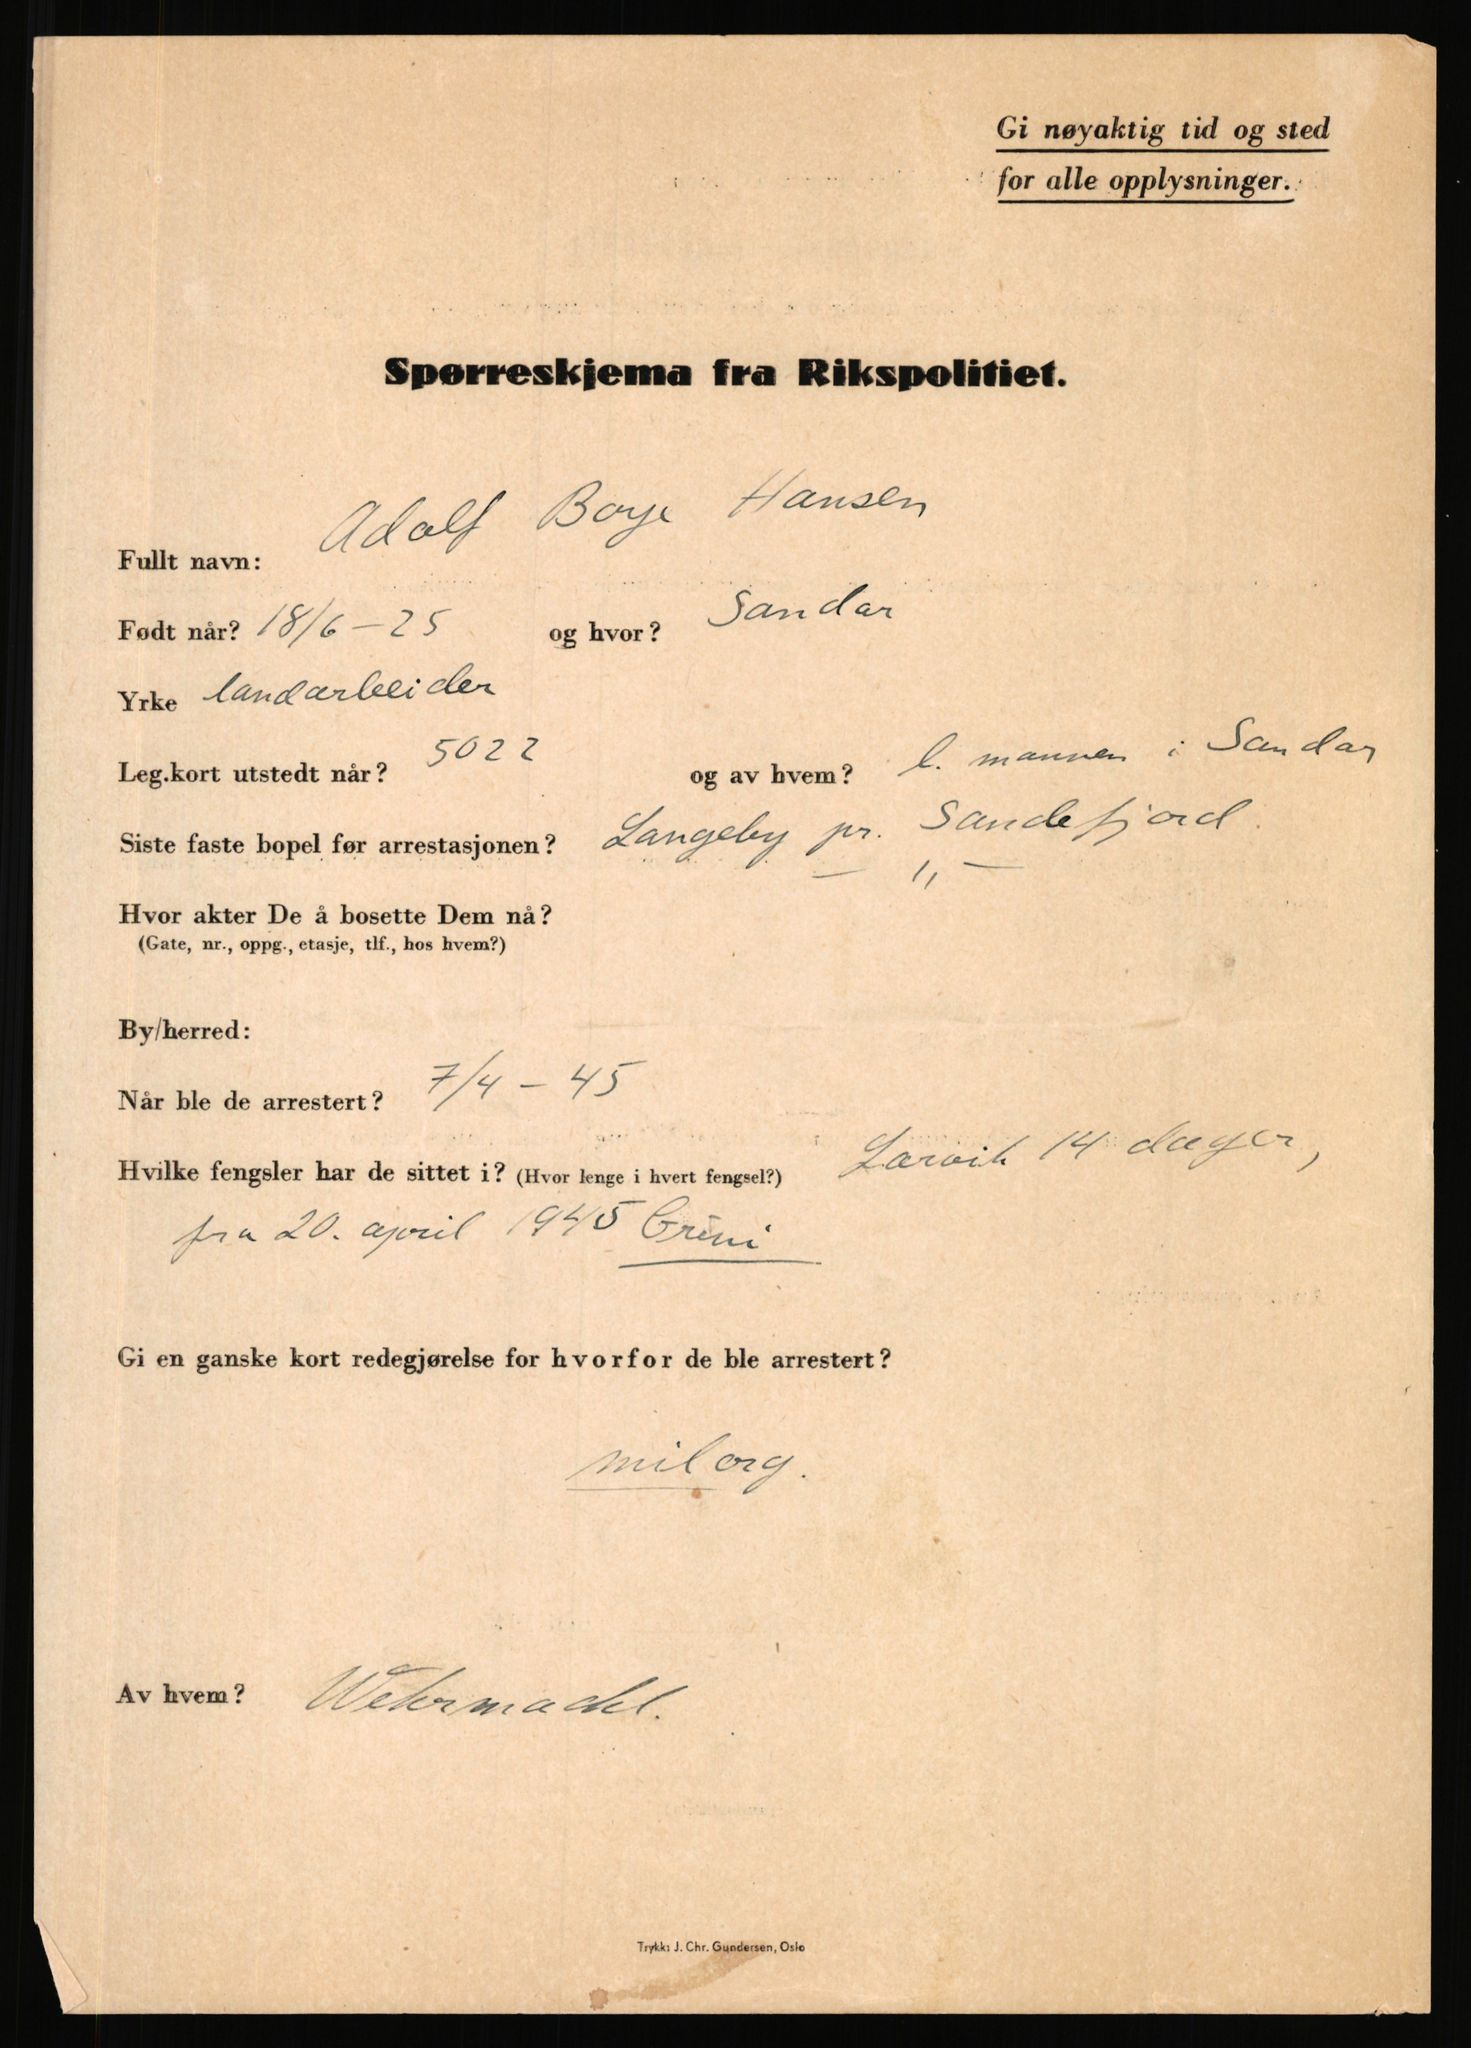 Gi nøyaktig tid og sted
for alle opplysninger.
Spørreskjema fra Rikspolitiet.
Fullt navn: Adolf Boye Hansen
Født når? 18/6 - 25 og hvor? Sandar
Yrke landarbeider
Leg.kort utstedt når? 5022 og av hvem? l. mannen i Sandar
Siste faste bopel før arrestasjonen? Langeby pr. Sandefjord.
Hvor akter De å bosette Dem nå? — " —
(Gate, nr., oppg., etasje, tlf., hos hvem?)
By/herred:
Når ble de arrestert? 7/4 - 45
Hvilke fengsler har de sittet i? (Hvor lenge i hvert fengsel?) Larvik 14 dager,
fra 20. april 1945 Grini
Gi en ganske kort redegjørelse for hvorfor de ble arrestert?
milorg.
Av hvem? Wehrmacht.
Trykk: J. Chr. Gundersen, Oslo